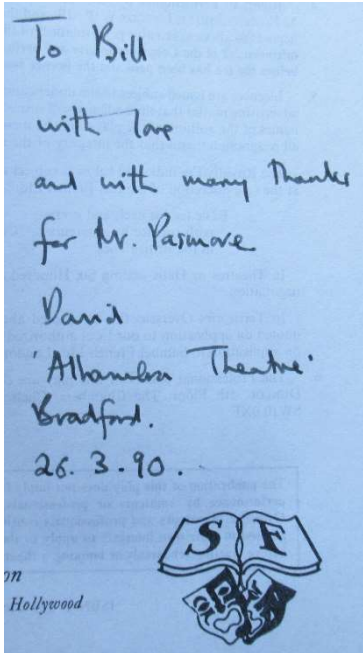 To Bill
with love
and with many thanks
for Mr. Pasmore
David
'Alhambra Theatre'
Bradford.
26.3.90.
S F
on
Hollywood